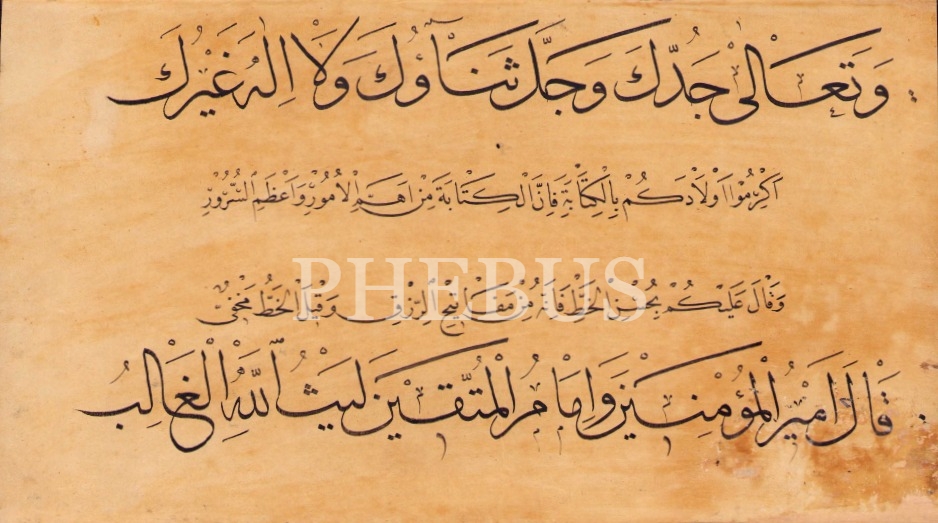 وَتَعَالٰى جَدُّكَ وَجَلَّ ثَنَاؤُكَ وَلَا اِلٰهَ غَيْرُكَ
اَكْرِمُوْا اَوْلَادَكُمْ بِالْكِتَابَةِ فَاِنَّ الْكِتَابَةَ مِنْ اَهَمِّ الْاُمُوْرِ وَاَعْظَمِ السُّرُوْرِ
وَقَالَ عَلَيْكُمْ بِحُسْنِ الْخَطِّ فَاِنَّهُ مِنْ مَفَاتِيْحِ الرِّزْقِ وَقِيْلَ الْخَطُّ مَخْفِيٌّ
PHEBUS
قَالَ اَمِيْرُ الْمُؤْمِنِيْنَ وَاِمَامُ الْمُتَّقِيْنَ لَيْثُ اللّٰهِ الْغَالِبُ